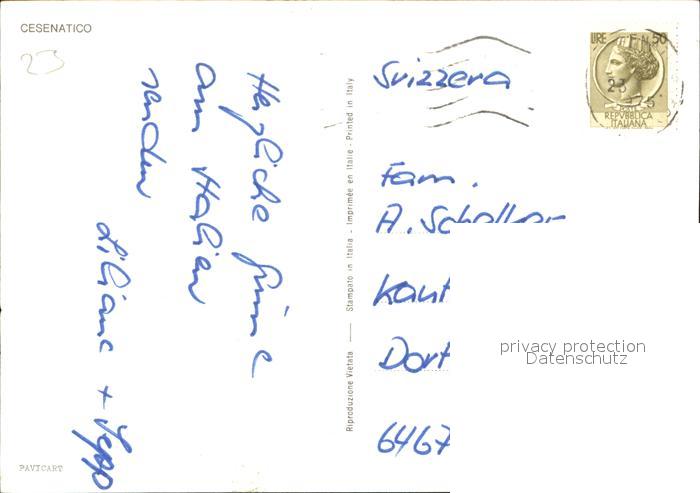 CESENATICO
23
Herzliche Grüsse
aus Italien
senden
Liliane + Seppo
PAVICART
Riproduzione Vietata — Stampato in Italia - Imprimée en Italie - Printed in Italy
LIRE 50
REPVBBLICA
ITALIANA
23
Svizzera
Fam.
A. Scholler
Kaut
Dorf
6467
privacy protection
Datenschutz